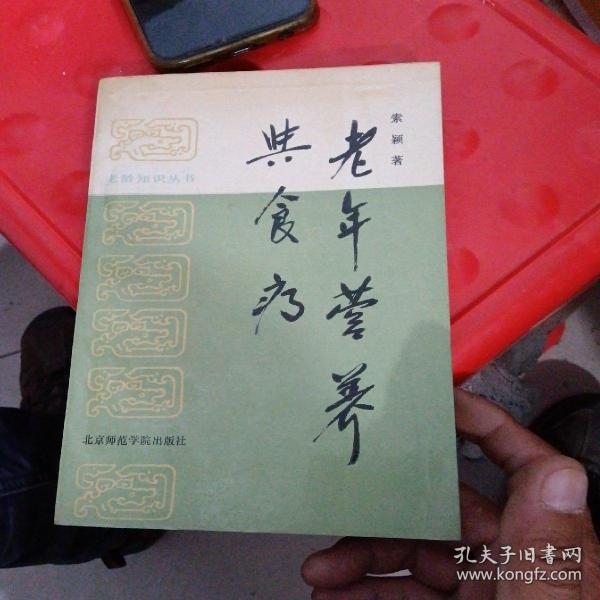 索颖著
老年营养
与食疗
老龄知识丛书
北京师范学院出版社
孔夫子旧书网
www.kongfz.com